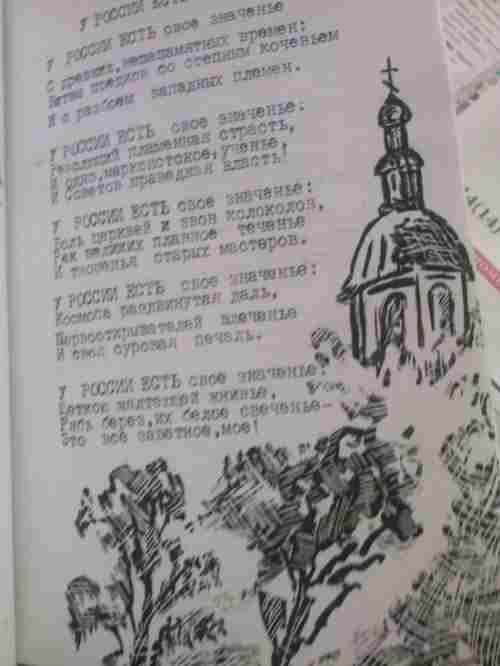 У РОССИИ ЕСТЬ
У РОССИИ ЕСТЬ свое значенье
С древних, незапамятных времен:
Битвы предков со степным кочевьем
И с разбоем западных племен.
У РОССИИ ЕСТЬ свое значенье:
Революций пламенная страсть,
И одно, марксистское, ученье,
И Советов праведная власть!
У РОССИИ ЕСТЬ свое значенье:
Боль церквей и звон колоколов,
Рек великих плавное теченье
И творенья старых мастеров.
У РОССИИ ЕСТЬ свое значенье:
Космоса раздвинутая даль,
Первооткрывателей влеченье
И своя суровая печаль.
У РОССИИ ЕСТЬ свое значенье:
Веткой желтеющей жнивье,
Рябь берез, их белое свеченье-
Это всё заветное, мое!